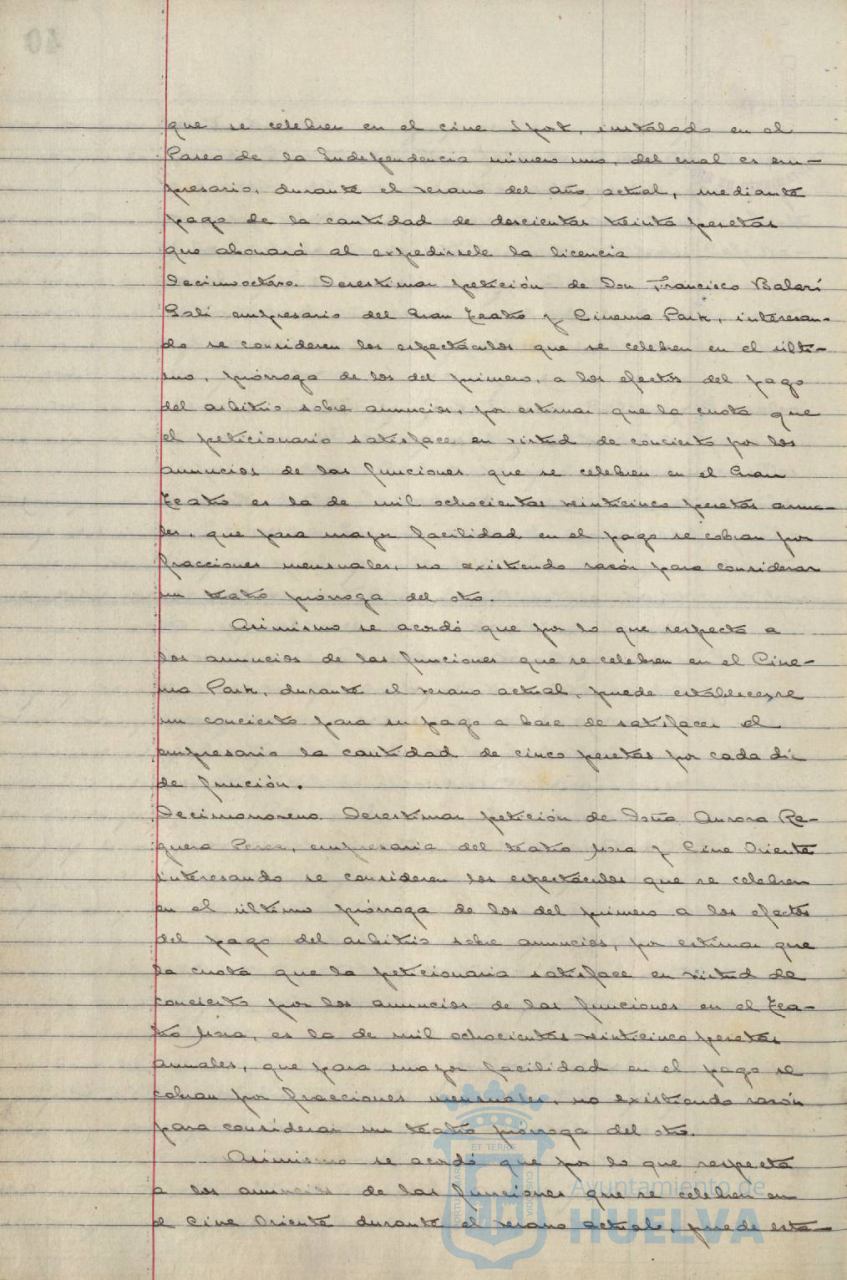 que se celebren en el cine Sport, instalado en el
Paseo de la Independencia número uno, del cual es em-
presario, durante el verano del año actual, mediante
pago de la cantidad de doscientas treinta pesetas
que abonará al expedírsele la licencia
Decimoctavo. Desestimar petición de Don Francisco Balarí
Galí empresario del Gran Teatro y Cinema Park, interesan-
do se consideren los espectáculos que se celebren en el últi-
mo, prórroga de los del primero, a los efectos del pago
del arbitrio sobre anuncios, por estimar que la cuota que
el peticionario satisface en virtud de concierto por los
anuncios de las funciones que se celebren en el Gran
Teatro es la de mil ochocientas veinticinco pesetas anua-
les, que para mayor facilidad en el pago se cobran por
fracciones mensuales, no existiendo razón para considerar
un teatro prórroga del otro.
Asimismo se acordó que por lo que respecta a
los anuncios de las funciones que se celebren en el Cine-
ma Park, durante el verano actual, puede establecerse
un concierto para su pago a base de satisfacer el
empresario la cantidad de cinco pesetas por cada día
de función.
Decimonoveno. Desestimar petición de Doña Aurora Re-
guera Perea, empresaria del teatro Mora y Cine Oriente
interesando se consideren los espectáculos que se celebren
en el último prórroga de los del primero a los efectos
del pago del arbitrio sobre anuncios, por estimar que
la cuota que la peticionaria satisface en virtud de
concierto por los anuncios de las funciones en el Tea-
tro Mora, es la de mil ochocientas veinticinco pesetas
anuales, que para mayor facilidad en el pago se
cobran por fracciones mensuales, no existiendo razón
para considerar un teatro prórroga del otro.
Asimismo se acordó que por lo que respecta
a los anuncios de las funciones que se celebren en
el Cine Oriente durante el verano actual, puede esta-
Ayuntamiento de
HUELVA